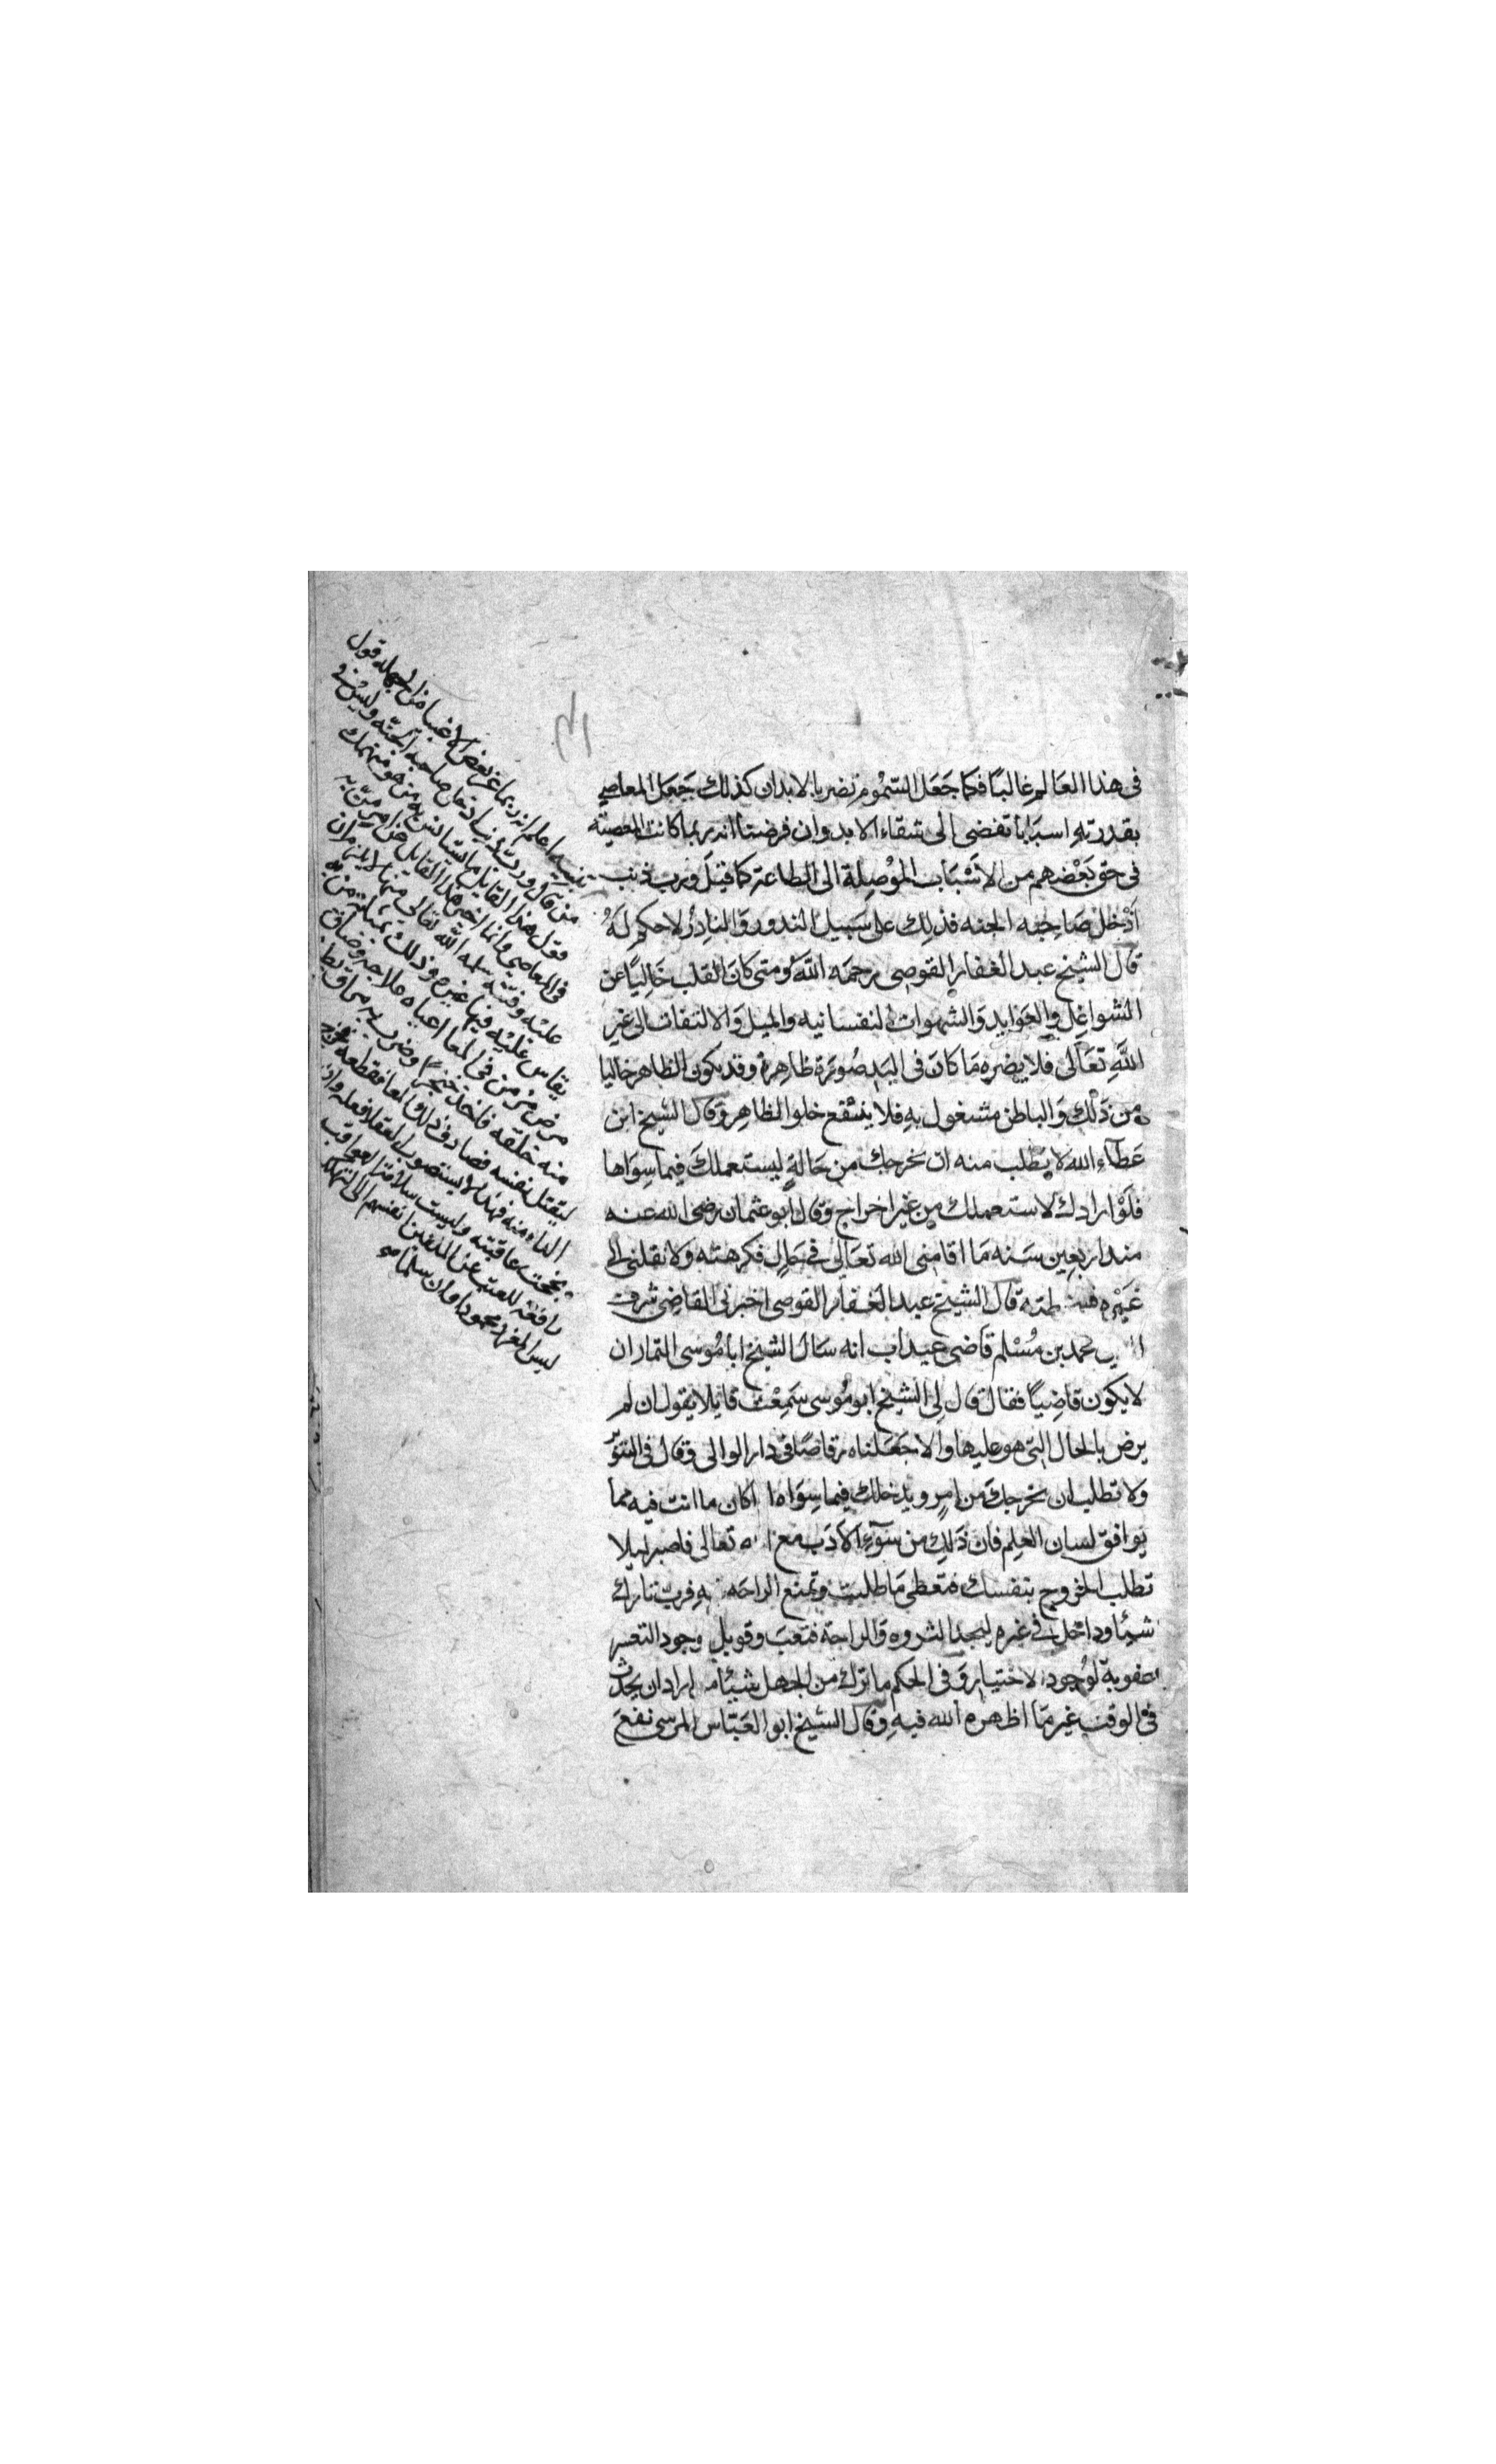 في هذا العَالم غالبًا فكما جَعَل السّمُوم تضر بالابدان كذلك جَعَل المعاصي
بقدرتهِ اسبَابًا تفضى الى شقاء الابد وان فرضنا انه ربما كانت المعصيّة
في حق بَعْضهم من الاسْبَاب الموْصِلة الى الطاعة كما قيلَ ورب ذنب
اَدْخل صَاحِبَه الجنه فذلِك على سَبيل الندور وَالنادِر لا حكم لَهُ
قال الشيخ عبد الغفار القوصى رحمَه اللهُ ومتى كانَ القلب خَالِيًا عن
الشواغِل والعَوَايد وَالشهوات النفسانيه والميل وَالالتفات الى غير
اللهِ تعَالى فلا يضره مَا كانَ في اليَد صُورَة ظاهرة وقد يكون الظاهر خاليا
من ذَلك وَالباطن مشغول بهِ فلا ينفع خلو الظاهِر وَقال الشيخ ابن
عَطآءِ الله لا تطلب منه ان يخرجك من حَالةٍ ليستعملكَ فيما سِوَاها
فلَوْ ارادك لاستعملك مِن غير اخراج وَقال ابو عثمان رضى الله عنه
منذ اربعين سَنه مَا اقامنى الله تعَالى في حَالٍ فكرهته ولا نقلنى الى
غَيْره فسخطته قال الشيخ عبد الغفار القوصى اخبرنى القاضِى شرف
محمد بن مُسْلم قاضى عيداب انه سَال الشيخ ابا مُوسى التمار ان
لا يكون قاضِيًا فقال قال لِى الشيخ ابو مُوسى سَمِعْت قايلا يقول ان لم
يرض بالحال التى هو عليها والا جَعَلناه رقاصًا فى دار الوالى وقال فى التنوير
ولا تطلب ان يخرجكَ من امرٍ ويدخلك فيما سِوَاه اِذا كان ما انت فيه مما
يوافق لسان العِلم فان ذَلِكَ من سُوَءِ الادَب مع الله تعالى فاصبر ليلا
تطلب الخروج بنفسك فتعطى مَا طلبت وتمنع الراحَه فيهِ فربّ تارك
شيئا وداخل في غيره ليجد الثروه وَالراحة فتعبَ وقوبل بوجود التعسر
عقوبة لوُجود الاختيار وَفى الحكم ما ترك من الجهل شيئًا من اراد ان يحدث
في الوقت غير مَا اظهره الله فيهِ وَقال الشيخ ابو العَبّاس المرسى نفعَ
تنبيه اعلم انه ربما غر بعض الاغبيا من الجهله قول
من قال ورب ذنب ادخل صاحبه الجنّه وليسَ في
قول هذا القايل ما يستانس به من هو منهمك
في المعاصي وانما اخبر هذا القايل عن امر منّ به
عليه وفتنه سلمه الله تعالى منها لا يلزم ان
يقاس عليه فيها غيره وذلك بمثابة من به
مرض مزمن في المعا اعياه علاجه وضاق
منه خلقه فاخذ خنجرًا وضرب به مراق بطنه
ليقتل نفسه فصادف ذلك المعا فقطعه فخرج
الداء منه فهذا لا يستصوب العقلا فعله وان
نجحت عاقبته وليست سلامة العواقب
رافعَة للعتب عن الملقين انفسهم الى التهلكه
ليس المغرر محمودا وان سلما